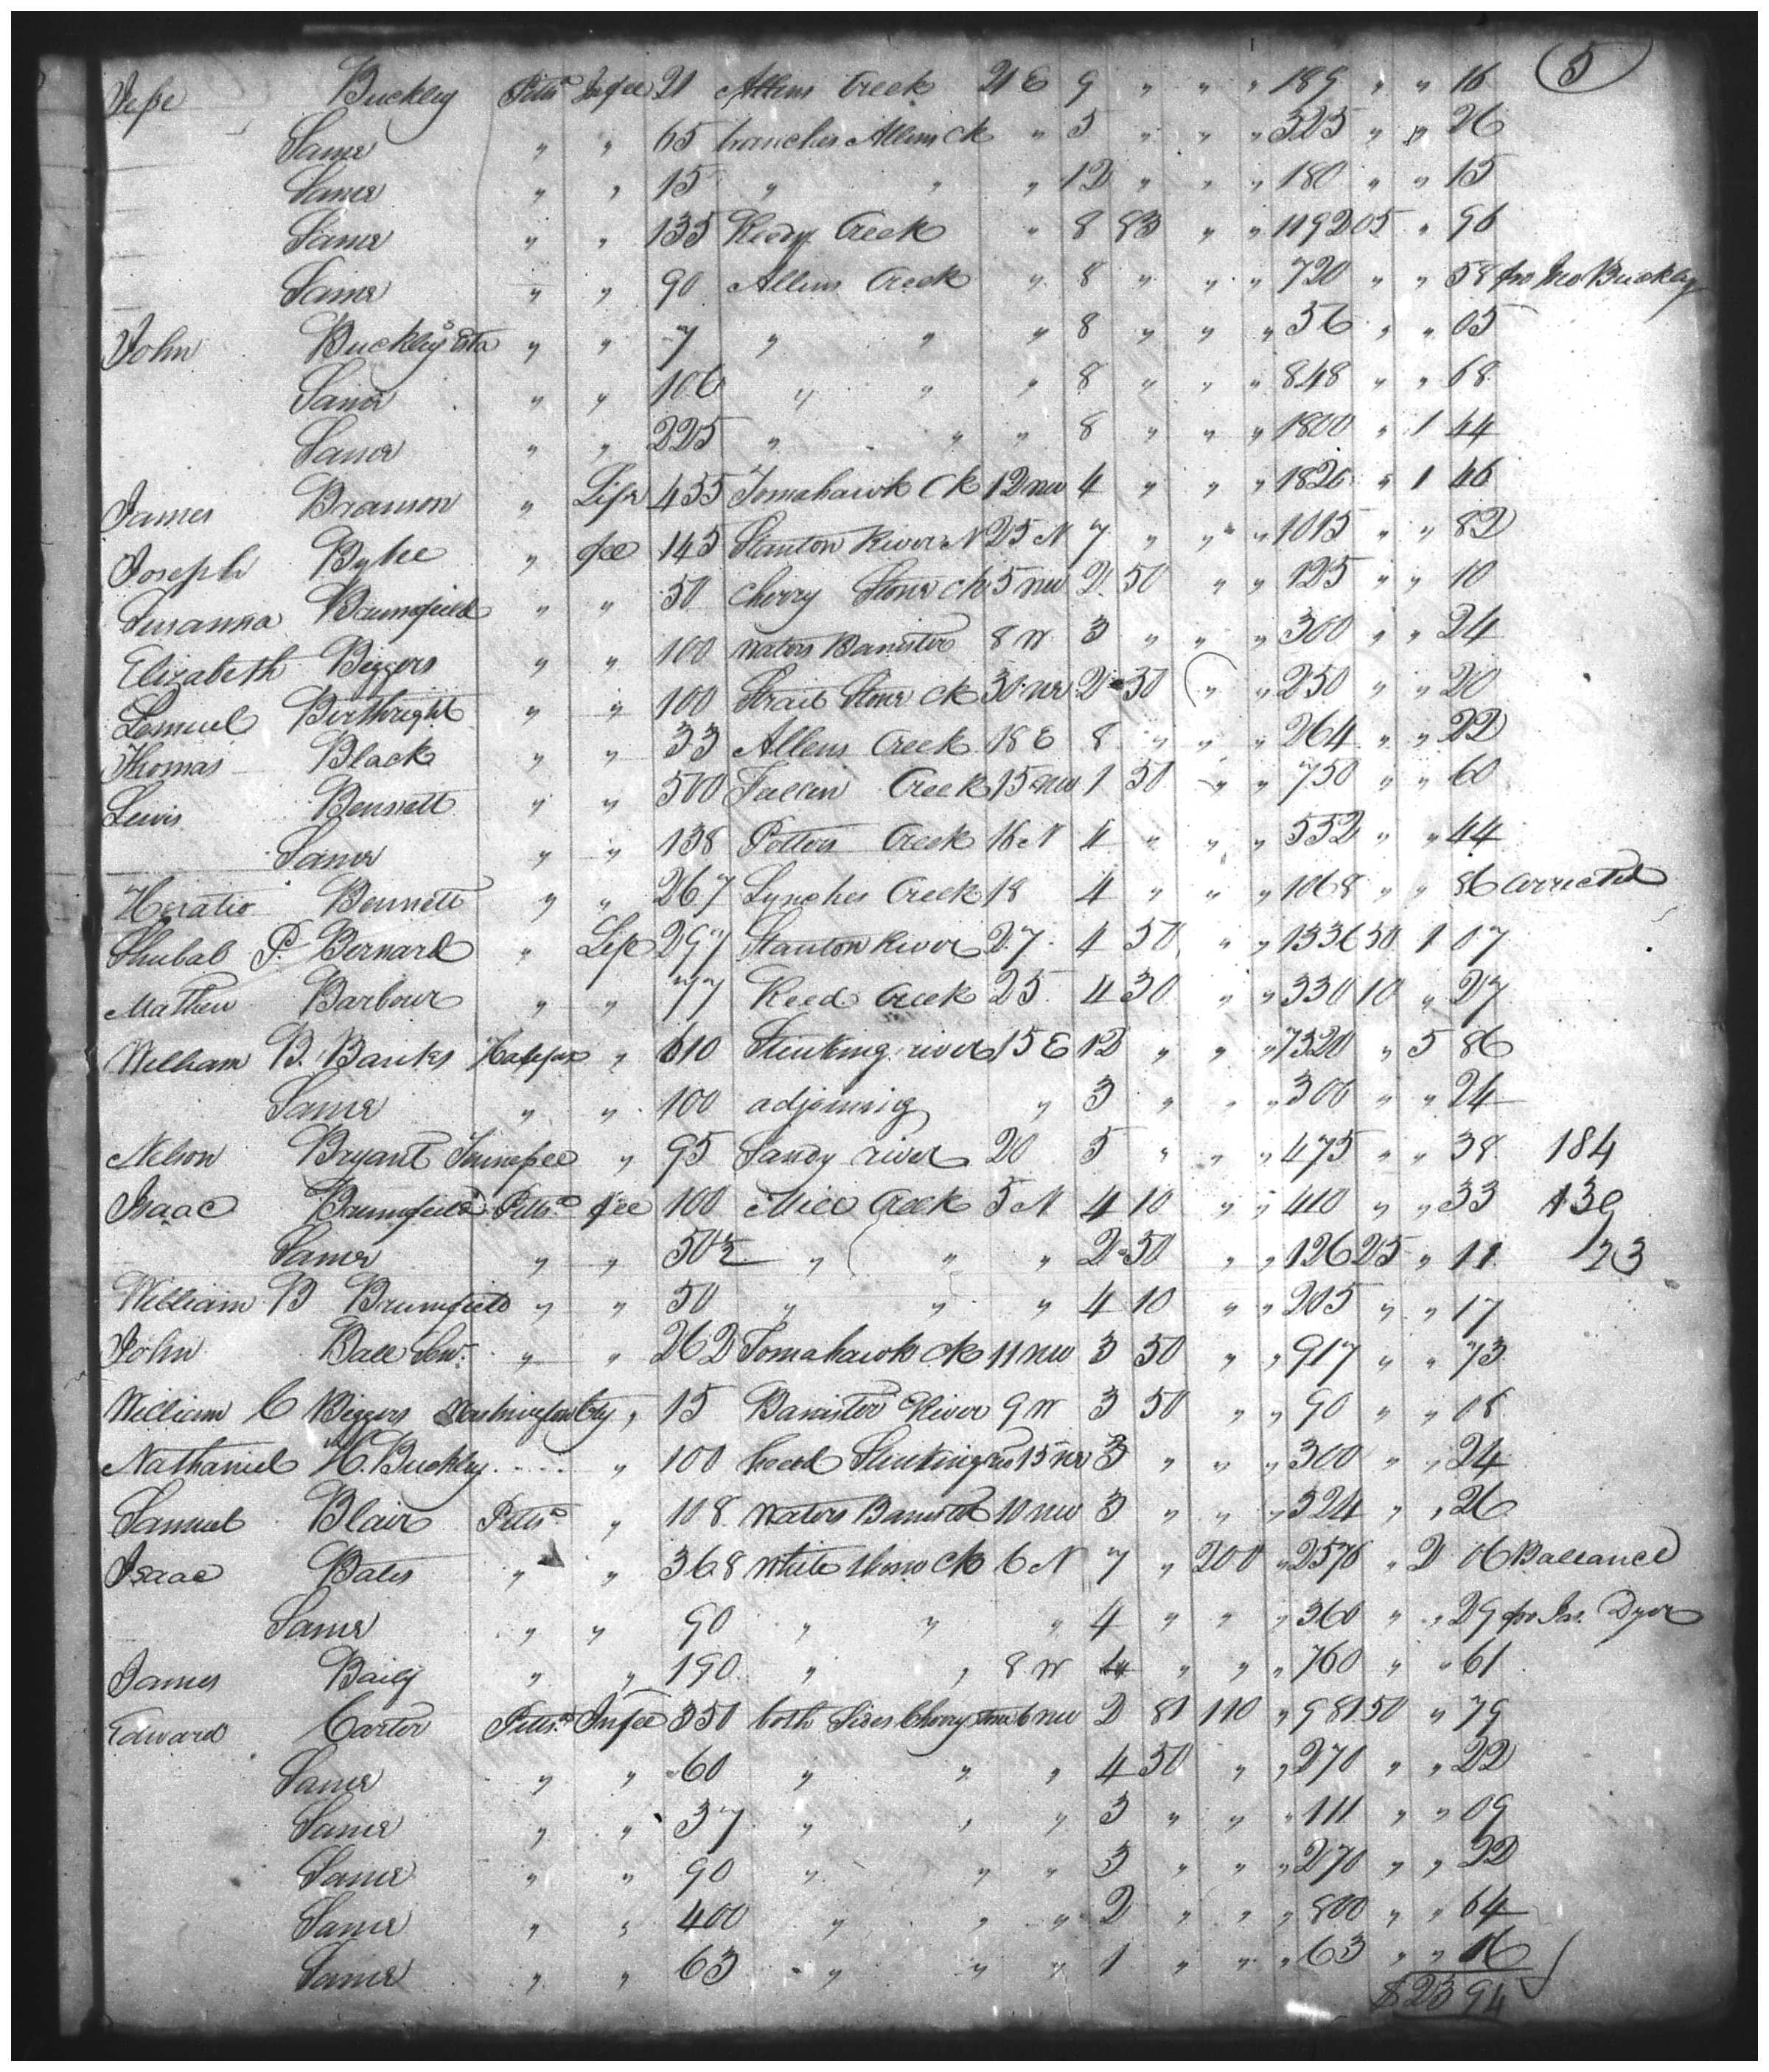 Jesse Buckley Pitts In fee 21 Allens Creek 21 E 9 " " " 189 " " 16 (5)
Same " " 65 branches Allens ck " 5 " " " 325 " " 26
Same " " 15 " " " 12 " " " 180 " " 15
Same " " 135 Reedy Creek " 8 83 " " 1192 05 " 96
Same " " 90 Allens Creek " 8 " " " 720 " " 58 fro Jno Buckley
John Buckley's Esta " " 7 " " " 8 " " " 56 " " 05
Same " " 106 " " " 8 " " " 848 " " 68
Same " " 225 " " " 8 " " " 1800 " 1 44
James Branson " Life 455 Tomahawk Ck 12 nw 4 " " " 1820 " 1 46
Joseph Bybee " fee 145 Stanton River N 25 N 7 " " " 1015 " " 82
Susanna Brumfield " " 50 Cherry Stone ck 5 nw 2 50 " " 125 " " 10
Elizabeth Biggers " " 100 waters Banister 8 W 3 " " " 300 " " 24
Lemuel Birthright " " 100 Strait Stone Ck 30 ne 2 50 " " 250 " " 20
Thomas Black " " 33 Allens Creek 18 E 8 " " " 264 " " 22
Lewis Bennett " " 500 Fallin Creek 15 nw 1 50 " " 750 " " 60
Same " " 138 Potters Creek 16 N 4 " " " 552 " " 44
Horatio Bennett " " 267 Lynches Creek 18 4 " " " 1068 " " 86 corrected
Shubal P. Bernard " Life 297 Stanton River 27 4 50 " " 1336 50 1 07
Mathew Barbour " " 77 Reed Creek 25 4 30 " " 330 10 " 27
William B. Banks Halifax " 610 Stinking river 15 E 12 " " " 7320 " 5 86
Same " " 100 adjoining " 3 " " " 300 " " 24
Nelson Bryant Tennessee " 95 Sandy river 20 5 " " " 475 " " 38 184
Isaac Brumfield Pitts fee 100 Mill Creek 5 N 4 10 " " 410 " " 33 139
Same " " 50½ " " " 2 50 " " 126 25 " 11 /23
William B Brumfield " " 50 " " " 4 10 " " 205 " " 17
John Ball Senr. " " 262 Tomahawk ck 11 nw 3 50 " " 917 " " 73
William C Biggers Washington Cty " 15 Banister River 9 W 3 50 " " 90 " " 08
Nathaniel H. Buckley .... " 100 head Stinking 15 ne 3 " " " 300 " " 24
Samuel Blair Pitts " 108 Waters Banister 10 nw 3 " " " 324 " " 26
Isaac Bates " " 368 White thorn ck 6 N 7 " 200 " 2576 " 2 06 Ballance
Same " " 90 " " " 4 " " " 360 " " 29 fro Dyer
James Baily " " 190 " " 8 W 4 " " " 760 " " 61
Edward Carter Pitts In fee 350 both Sides Cherry stone 6 nw 2 81 110 " 981 50 " 79
Same " " 60 " " " 4 50 " " 270 " " 22
Same " " 37 " " " 3 " " " 111 " " 09
Same " " 90 " " " 3 " " " 270 " " 22
Same " " 400 " " " 2 " " " 800 " " 64
Same " " 63 " " " 1 " " " 63 " " 06
$23 94